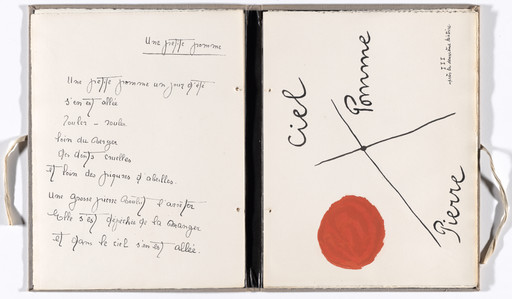 Une petite pomme
Une petite pomme un jour d'été
s'en est allée
Rouler - rouler
loin du verger
des dents cruelles
et loin des piqures d'abeilles.
Une grosse pierre voulut l'arrêter
Elle s'est depechée de la manger
et dans le ciel s'en est allée.
Ciel
Pomme
Pierre
III